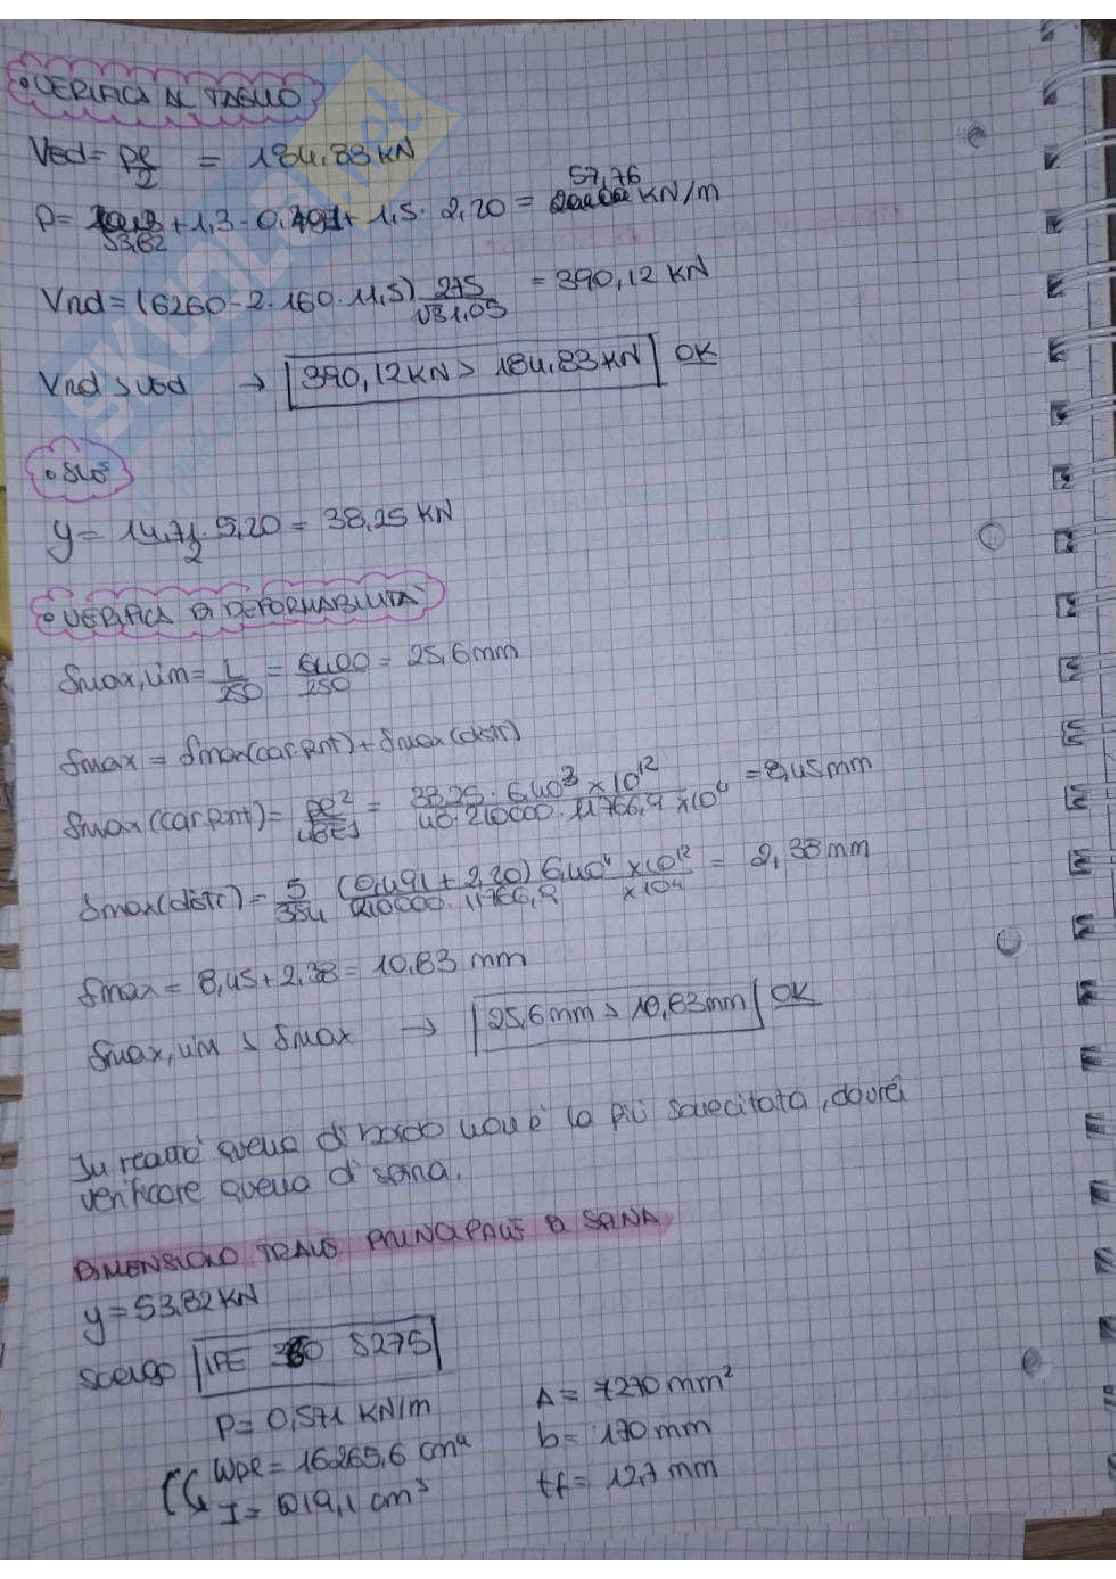 • VERIFICA AL TAGLIO
Ved = pl/2 = 184,83 KN
57,76
p = + 1,3 · 0,491 + 1,5 · 2,20 = KN/m
53,82
Vrd = (6260 - 2 · 160 · 11,5) 275/√3 1,05 = 390,12 KN
Vrd > Ved → 390,12 KN > 184,83 KN OK
• SLE
y = 14,71 · 5,20/2 = 38,25 KN
• VERIFICA DI DEFORMABILITÀ
δmax,lim = L/250 = 6400/250 = 25,6 mm
δmax = δmax(car.pnt) + δmax(distr)
δmax(car.pnt) = pl²/48EJ = 38,25 · 6,40³ × 10¹²/48 · 210000 · 11766,9 × 10⁴ = 8,45 mm
δmax(distr) = 5/384 (0,491 + 2,20) 6,40⁴ × 10¹²/210000 · 11766,9 × 10⁴ = 2,38 mm
δmax = 8,45 + 2,38 = 10,83 mm
δmax,lim > δmax → 25,6 mm > 10,83 mm OK
In realtà quella di bordo non è la più sollecitata, dovrei
verificare quella di spina.
DIMENSIONO TRAVE PRINCIPALE DI SPINA
y = 53,82 KN
scelgo IPE 360 S275
p = 0,571 KN/m A = 7270 mm²
Wpl = 16265,6 cm⁴ b = 170 mm
I = 1019,1 cm³ tf = 12,7 mm
SKUOLA.net